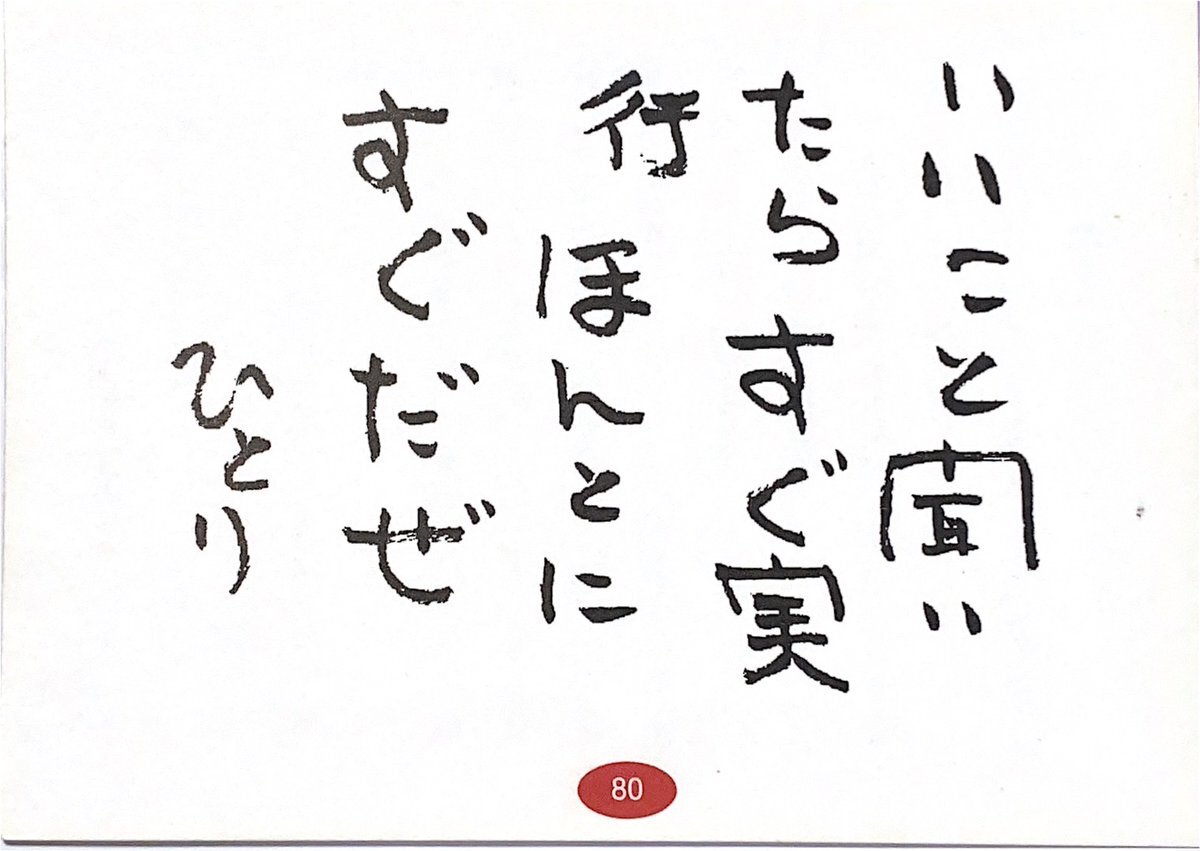 いいこと聞い
たらすぐ実
行 ほんとに
すぐだぜ
ひとり
80